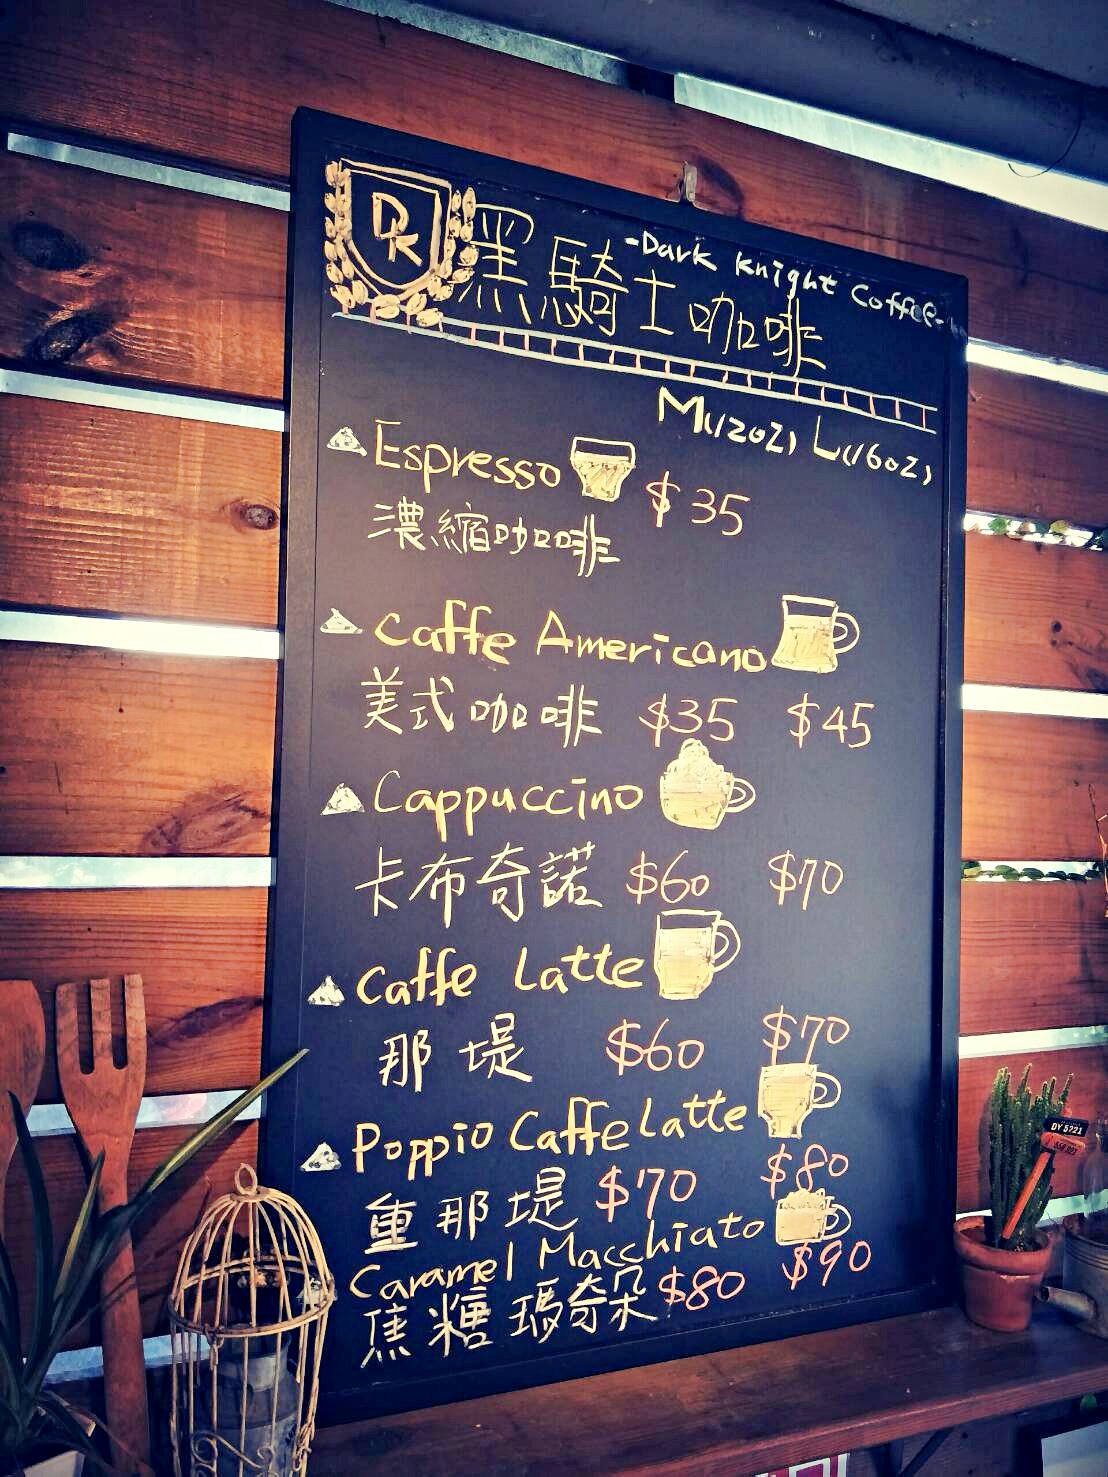 DK
-Dark Knight Coffee-
黑騎士咖啡
M(12oz) L(16oz)
Espresso $35
濃縮咖啡
Caffe Americano
美式咖啡 $35 $45
Cappuccino
卡布奇諾 $60 $70
Caffe Latte
那堤 $60 $70
Poppio Caffe Latte
重那堤 $70 $80
Caramel Macchiato
焦糖瑪奇朵 $80 $90
DY 5221